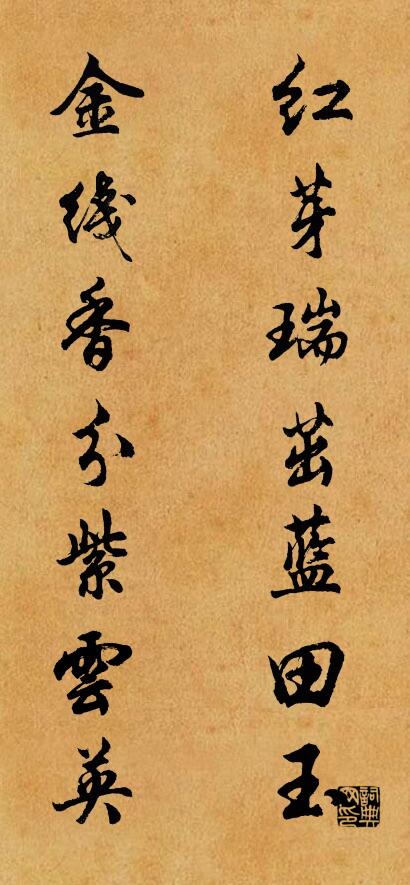 红芽瑞茁蓝田玉
金线香分紫雲英
詞典